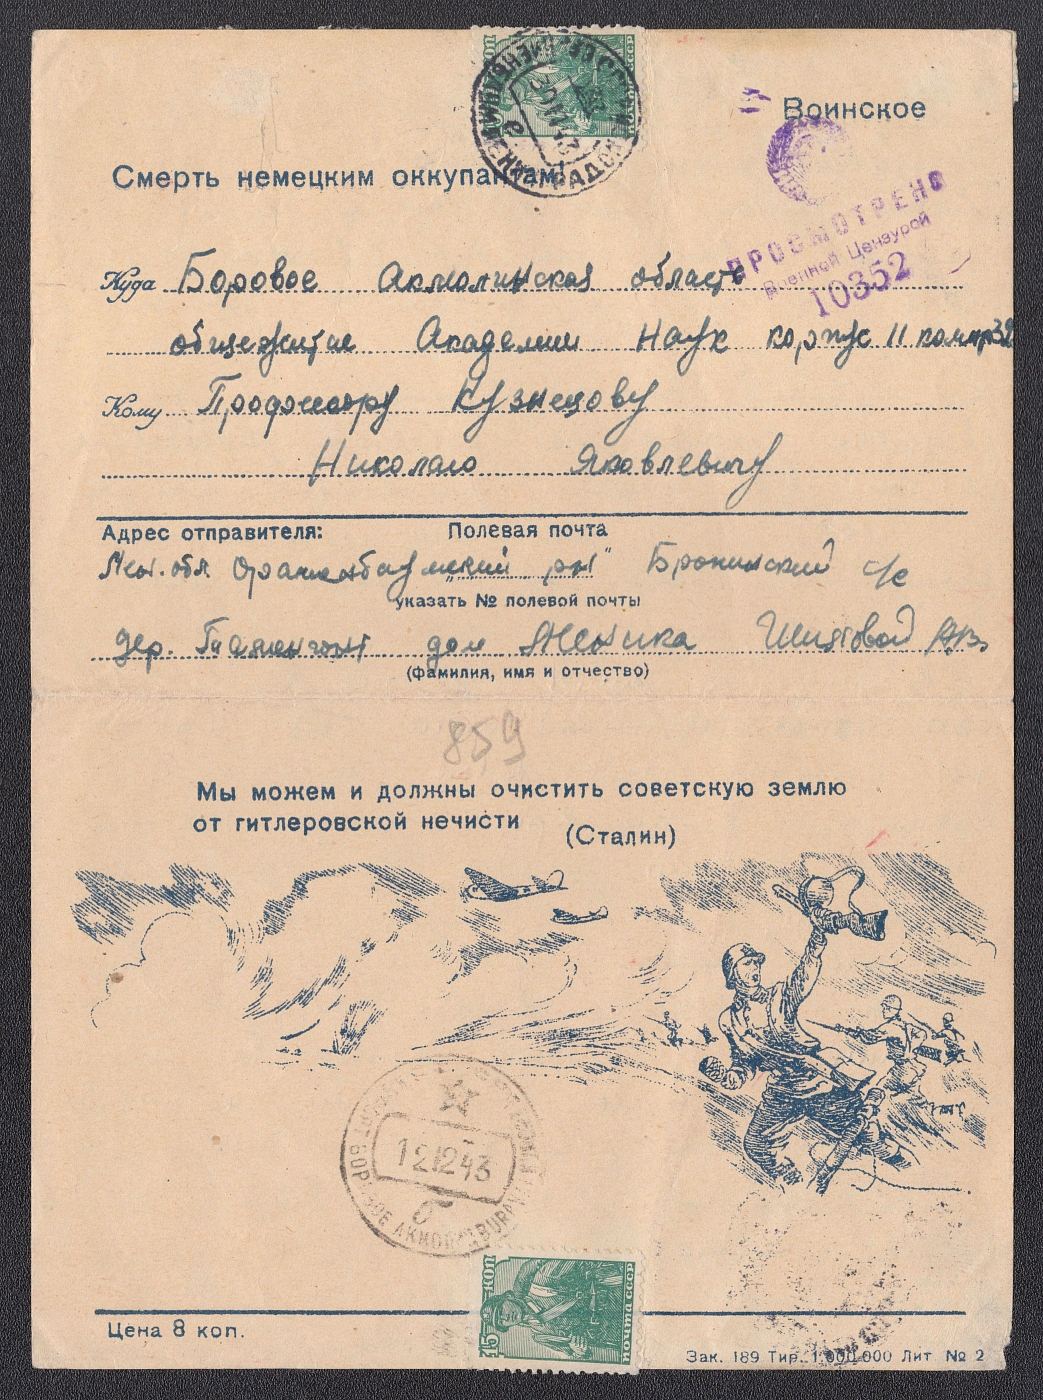 Воинское
Смерть немецким оккупантам!
30 11 43
ПРОСМОТРЕНО
Военной Цензурой
10352
Куда Боровое Акмолинская область
общежитие Академии Наук корпус 11 комн 32
Кому Профессору Кузнецову
Николаю Яковлевичу
Адрес отправителя: Полевая почта
Лен. обл. Ораниенбаумский рн Бронинский с/с
указать № полевой почты
дер. дом
(фамилия, имя и отчество)
859
Мы можем и должны очистить советскую землю
от гитлеровской нечисти
(Сталин)
12 12 43
15 КОП
ПОЧТА СССР
Цена 8 коп.
Зак. 189 Тир. 1.000.000 Лит № 2